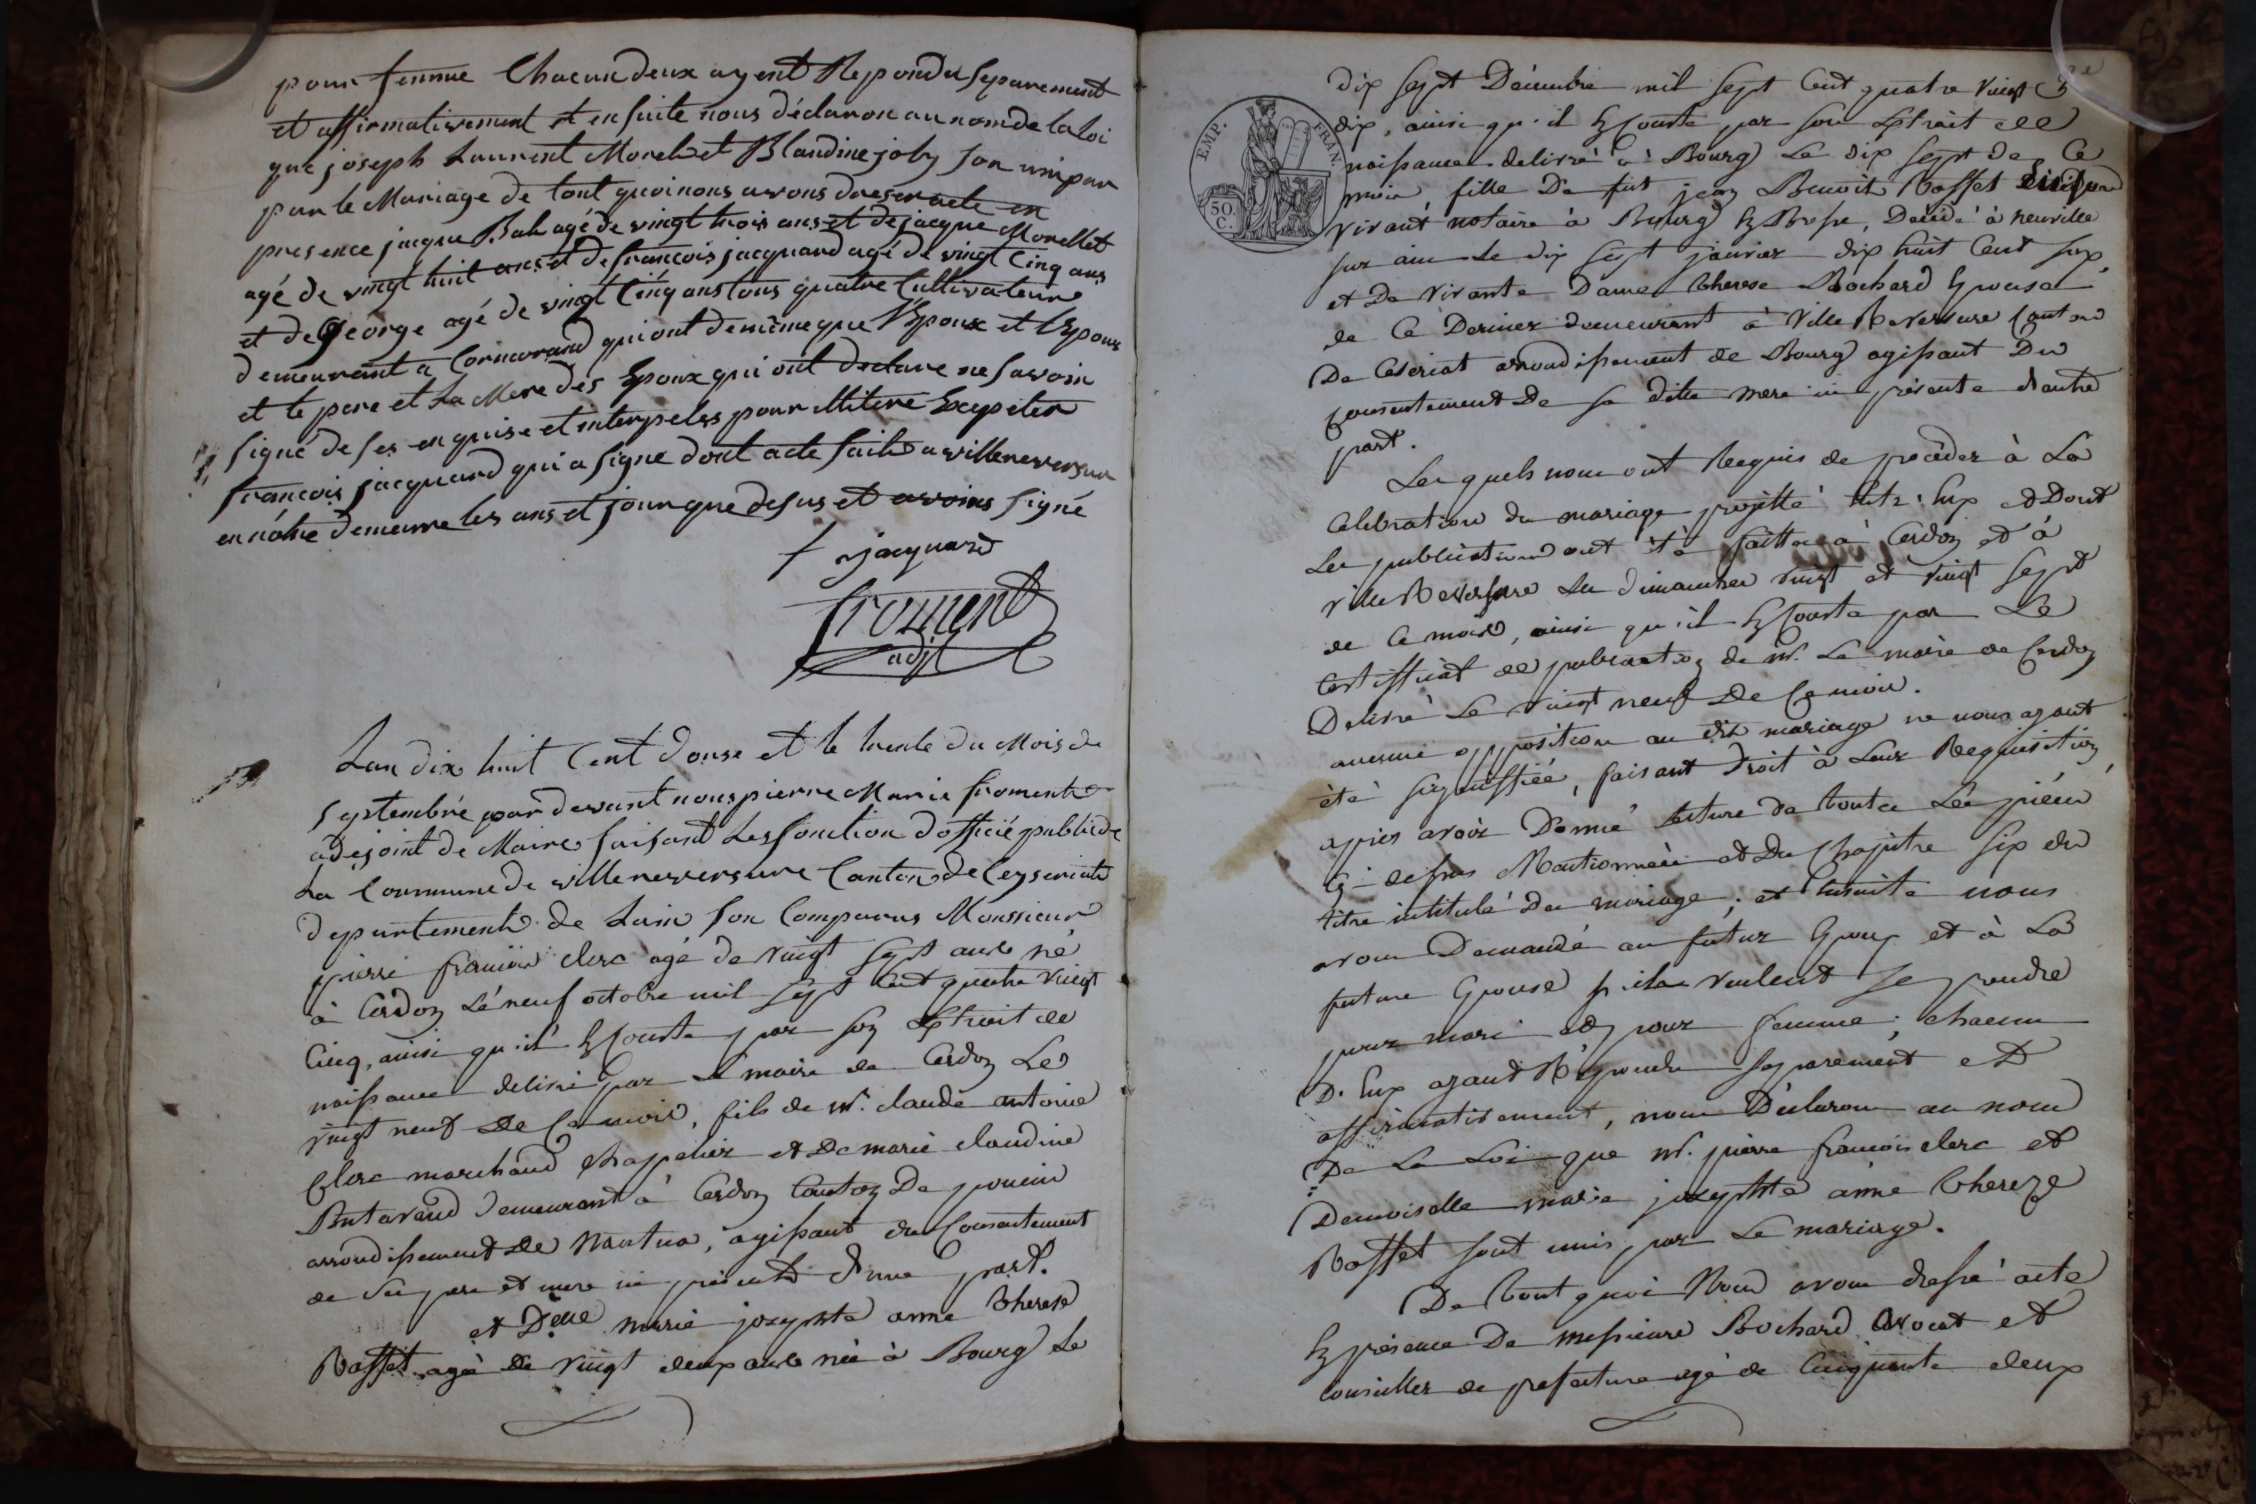 pour femme Chacun deux ayent Repondu separement
et affirmativement et ensuite nous déclaron au nom de la loi
que joseph Laurent Morel et Blandine joly son uni par
par le Mariage de tout quoi nous avons dressé acte en
presence jacque Bal agé de vingt trois ans et de jacque Morellet
agé de vingt huit ans et de francois jacquard agé de vingt Cinq ans
et de George agé de vingt Cinq ans tous quatre Cultivateur
demeurant a Corneraud qui ont demême que l'Epoux et lEpouse
et le pere et La Mere des Epoux qui ont declare ne savoir
signé de ses enquise et interpeles pour Exepter
francois jacquard qui a signe dont acte fait a villereversur
en nôtre demeure les ans et jour que desus et avons signé
f jacquard
froment
adj
Lan dix huit Cent douse et le trente du Mois de
septembre par devant nous pierre Marie froment
adejoint de Maire faisant Les fonction dofficié public de
La Commune de villereversure Canton de Ceyseriat
departement de Lain son Comparus Monsieur
pierre francois clerc agé de vingt sept ans né
à Cerdon Lé neuf octobre mil sept Cent quatre vingt
Cinq, ainsi qu'il Conste par son Extrait de
naissance delivré par Le maire de Cerdon Le
vingt neuf De Ce mois, fils de Mr. claude antoine
Clerc marchand Chappelier et De marie claudine
Butavand demeurant à Cerdon Canton De poncin
arrondissement De Nantua, agissant du Consentement
de Ses pere et mere ici présents d'une part.
et Delle marie josephte anne therese
Rosset agé de vingt deux ans née à Bourg Le
dix sept Décembre mil sept Cent quatre vingt
dix, ainsi qu'il Conste par son Extrait de
naissance delivré à Bourg Le dix sept de Ce
mois fille De fut jean Benoit Rosset
vivant notaire à Bourg En Bresse, Décédé à neuville
sur ain le dix sept janvier dix huit Cent
et De vivante Dame therese Bochard Epouse
de Ce Dernier demeurant à Ville Reversure Canton
De Ceseriat arrondissement de Bourg agissant Du
Consentement De sa ditte mere ici présente d'autre
part.
Lesquels nous ont Requis de procéder à La
Célébration du mariage projetté Entr'Eux et Dont
Les publications ont été faittes à Cerdon et à
ville Reversure Les dimanches vingt et vingt sept
de Ce mois, ainsi qu'il Conste par Le
Certifficat de publication de Mr. Le maire de Cerdon
Delivré Le vingt neuf De Ce mois.
aucune opposition au dit mariage ne nous ayant
été signiffiée, faisant Droit à Leur Requisition,
après avoir Donné Lecture De toutes Les pièces
Ci-dessus Mentionnées et Du Chapitre six du
titre intitulé Du mariage, et Ensuite nous
avons Demandé au futur Epoux et à La
future Epouse s'ils veulent se prendre
pour mari et pour femme; chacun
D'Eux ayant Répondu séparément et
affirmativement, nous Déclarons au nom
De La Loi que Mr. pierre francois clerc et
Demoiselle marie josephte anne Therese
Rosset sont unis par Le mariage.
De tout quoi Nous avons dressé acte
En présence De messieurs Bochard avocat et
Conseiller de prefecture agé de Cinquante deux
EMP. FRAN.
50. C.